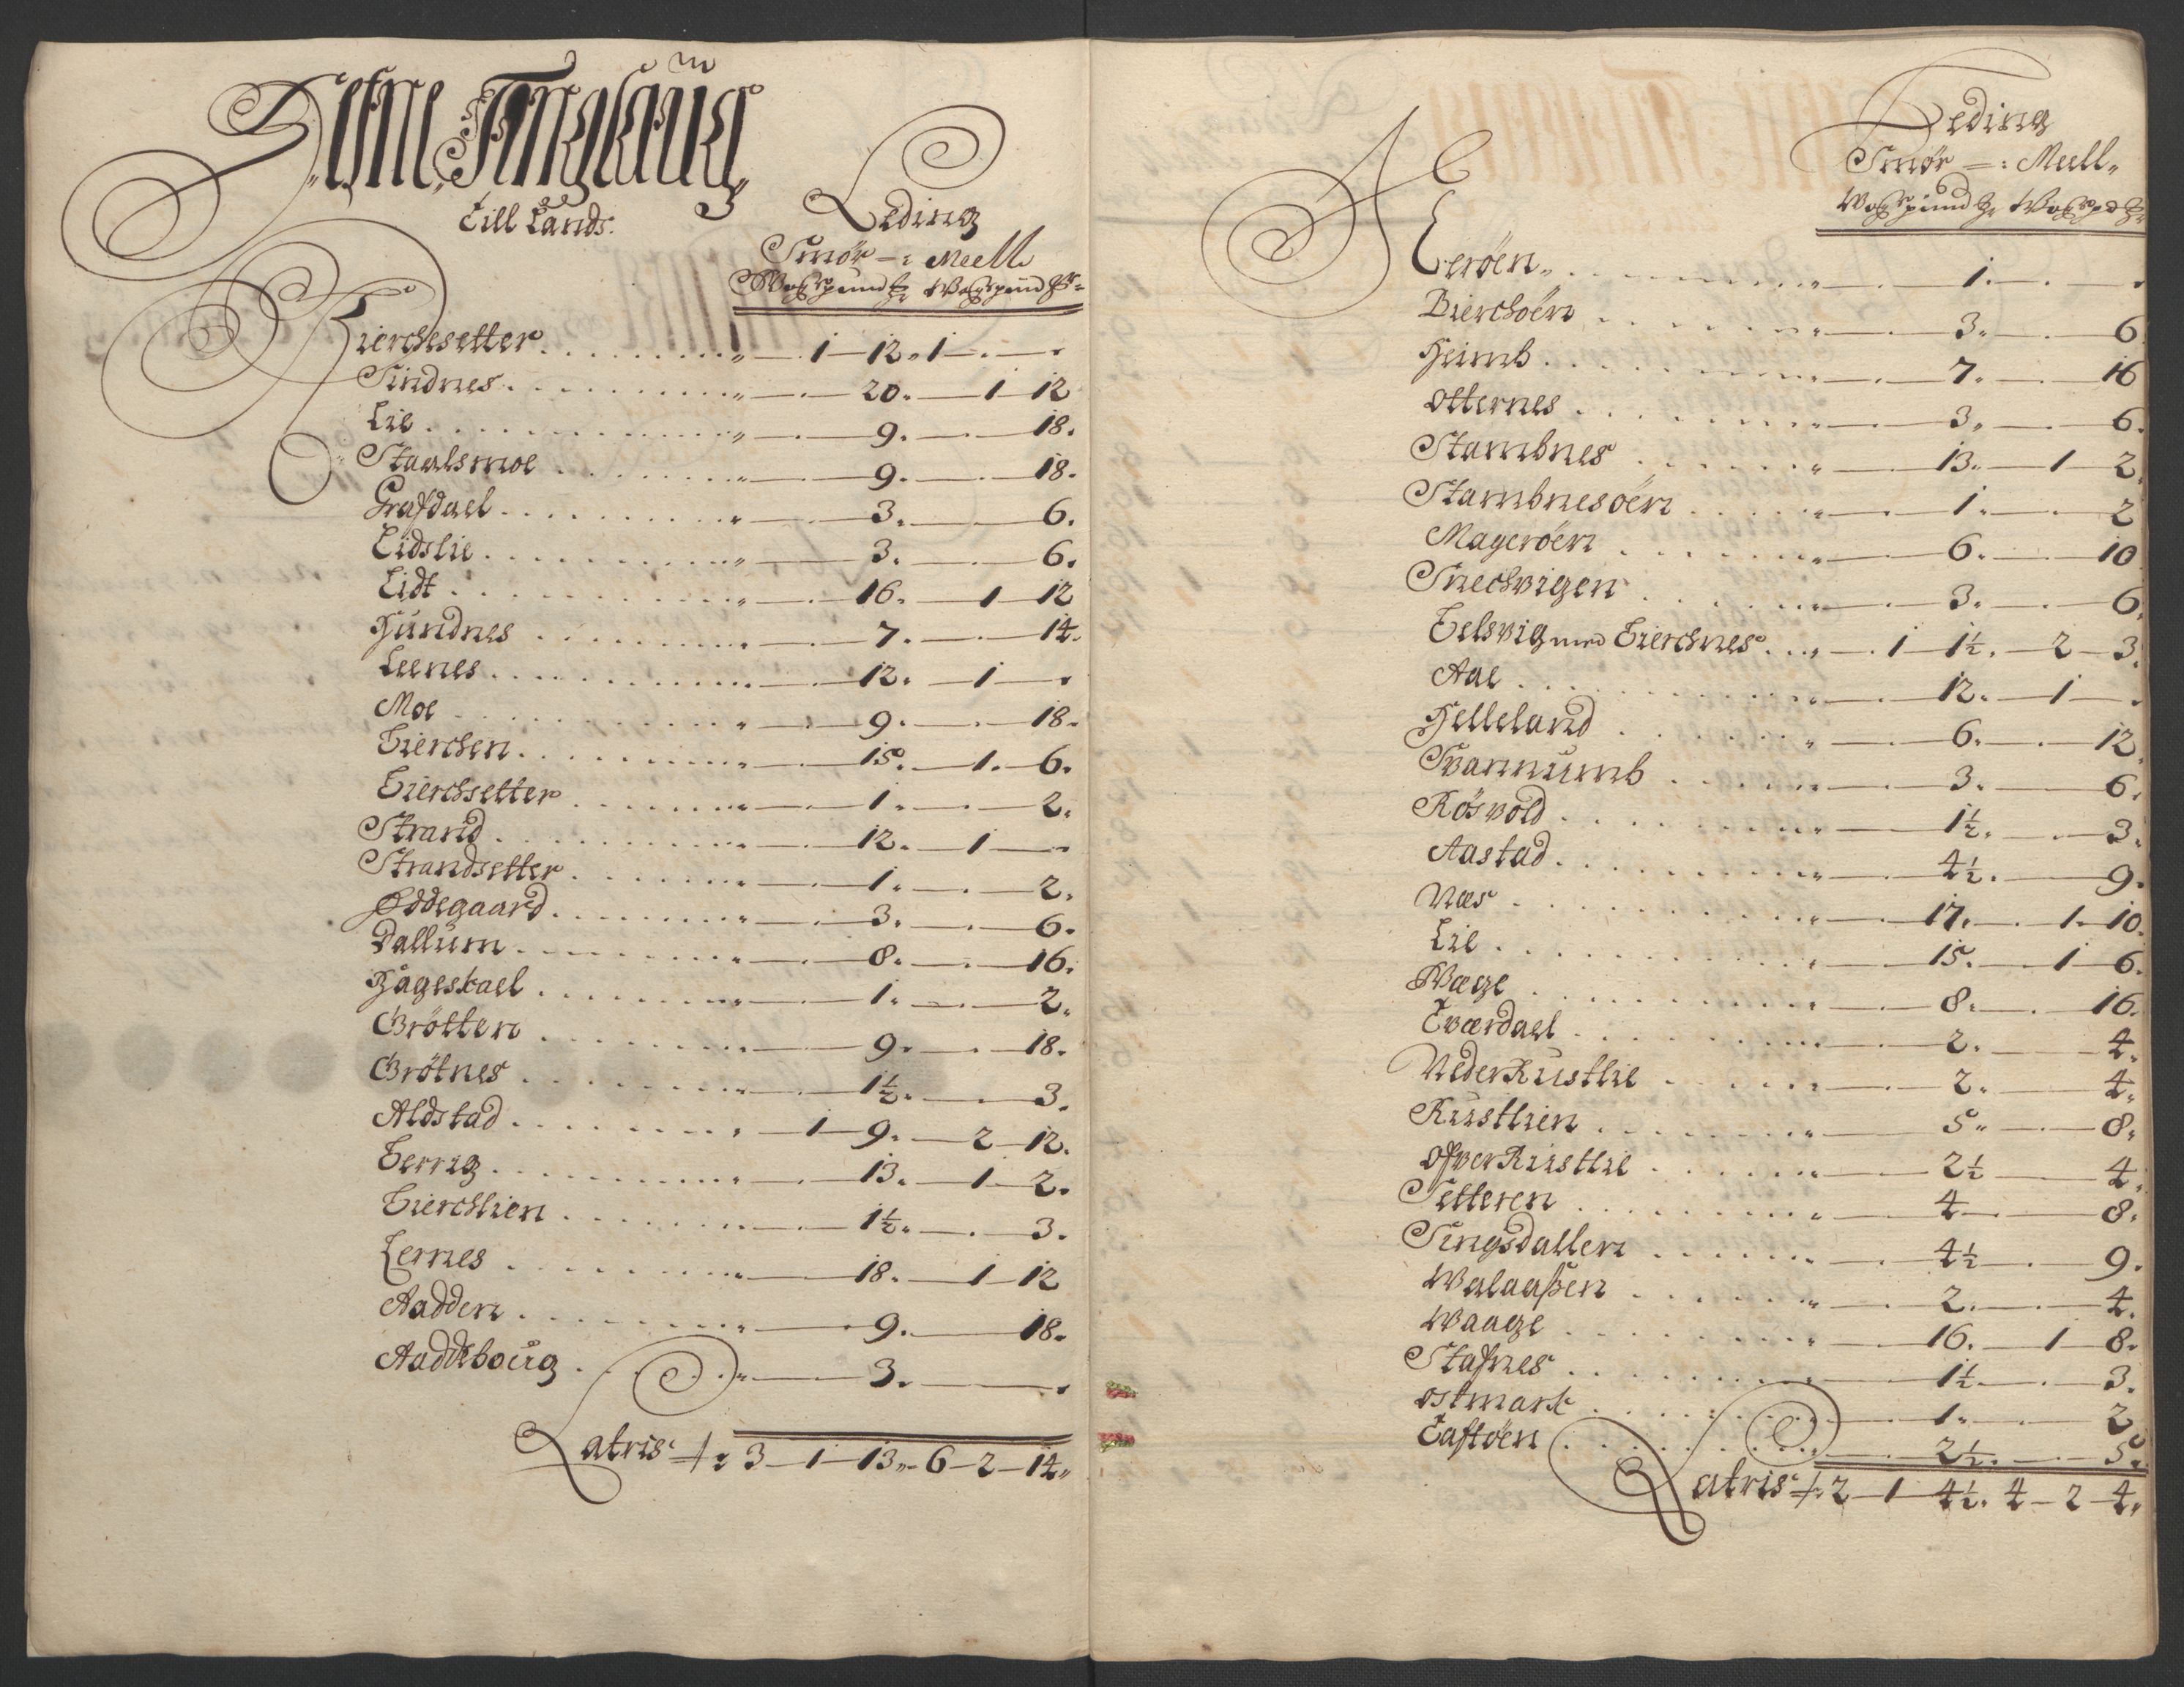 Hefne Tinglaug
Till Lands.
Leding
Smør —: Meell.
Wog pund ℔ Wog pund ℔
Bierchesetter . . . . „ — . 1 — 12 „ 1 — . —
Sindnes . . . . „ — . — 20. — 1 12
Lie . . . . „ — . — 9. — . — 18.
Staalsmoe . . . . „ — . — 9. — . — 18.
Grafdael . . . . „ — 3. — 6.
Eidslie . . . . „ — 3. — 6.
Eidt . . . . „ — . — 16. — 1 12
Hundnes . . . . „ — . — 7. — . — 14.
Leenes . . . . „ — . — 12. — 1 —
Moe . . . . „ — . — 9. — . — 18.
Eierchen . . . . „ — . — 15. — 1. — 6.
Eierchsetter . . . . „ — . — 1. — . — 2.
Strand . . . . „ — . — 12. — 1 —
Strandsetter . . . . „ — . — 1. — . — 2.
Øddegaard . . . . „ — . — 3. — . — 6.
Dallum . . . . „ — . — 8. — . — 16.
Hageskael . . . . „ — . — 1. — . — 2.
Grötten . . . . „ — 9. — . — 18.
Grötnes . . . . „ — 1½. — . — 3.
Aldstad . . . . „ — 1 — 9. — 2 — 12.
Berrig . . . . „ — . — 13. — 1 — 2.
Bierchlien . . . . „ — . — 1½. — . — 3.
Lernes . . . . „ — 18. — 1 — 12
Aadden . . . . „ — 9. — 18.
Aaddeboug . . . . „ — 3. —
Latris 3 — 1 — 13 „ 6 — 2 — 14 „
Leding
Smør —: Meell.
Wog pund ℔ Wog pd ℔
Leröen . . . . „ — . 1. — . —
Bierchöen . . . . „ — . — 3. — . 6
Heimb . . . . „ — . — 7. — . 16
Otternes . . . . „ — . — 3. — . 6.
Stambnes . . . . „ — . — 13. — 1 2.
Stambnesöen . . . . „ — . — 1. — . 2
Mageröen . . . . „ — . — 6. — . 10
Snechvigen . . . . „ — . — 3. — . — 6.
Belsvig med Bierchnes . . . . „ — . 1 1½. — 2 — 3.
Aae . . . . „ — . — 12. — 1 — .
Helleland . . . . „ — . — 6. — . 12.
Svannumb . . . . „ — . — 3. — . 6.
Rösvold . . . . „ — 1½. — . 3.
Aastad . . . . „ — 4½. — 9.
Næs . . . . „ — . — 17. — . 1. — 10.
Lie . . . . „ — . — 15. — . 1 — 6.
Wæge . . . . „ — . — 8. — . 16.
Tværdael . . . . „ — . — 2. — 4.
Neder Rustlie . . . . „ — . — 2. — 4.
Rustlien . . . . „ — 5 „ — . 8.
Ofver Rustlie . . . . „ — 2½ — 4.
Setteren . . . . „ — . — 4 — . 8.
Singsdallen . . . . „ — . 4½ — . 9.
Walaaßen . . . . „ — . 2. — . 4.
Waage . . . . „ — . — 16. — 1 — 8.
Stafnes . . . . „ — 1½ — . 3.
Ostmark . . . . „ — 1. — . 2
Taftöen . . . . — . 2½. — . 5.
Latris 2 — 1 — 4½. 4 — 2 — 4.